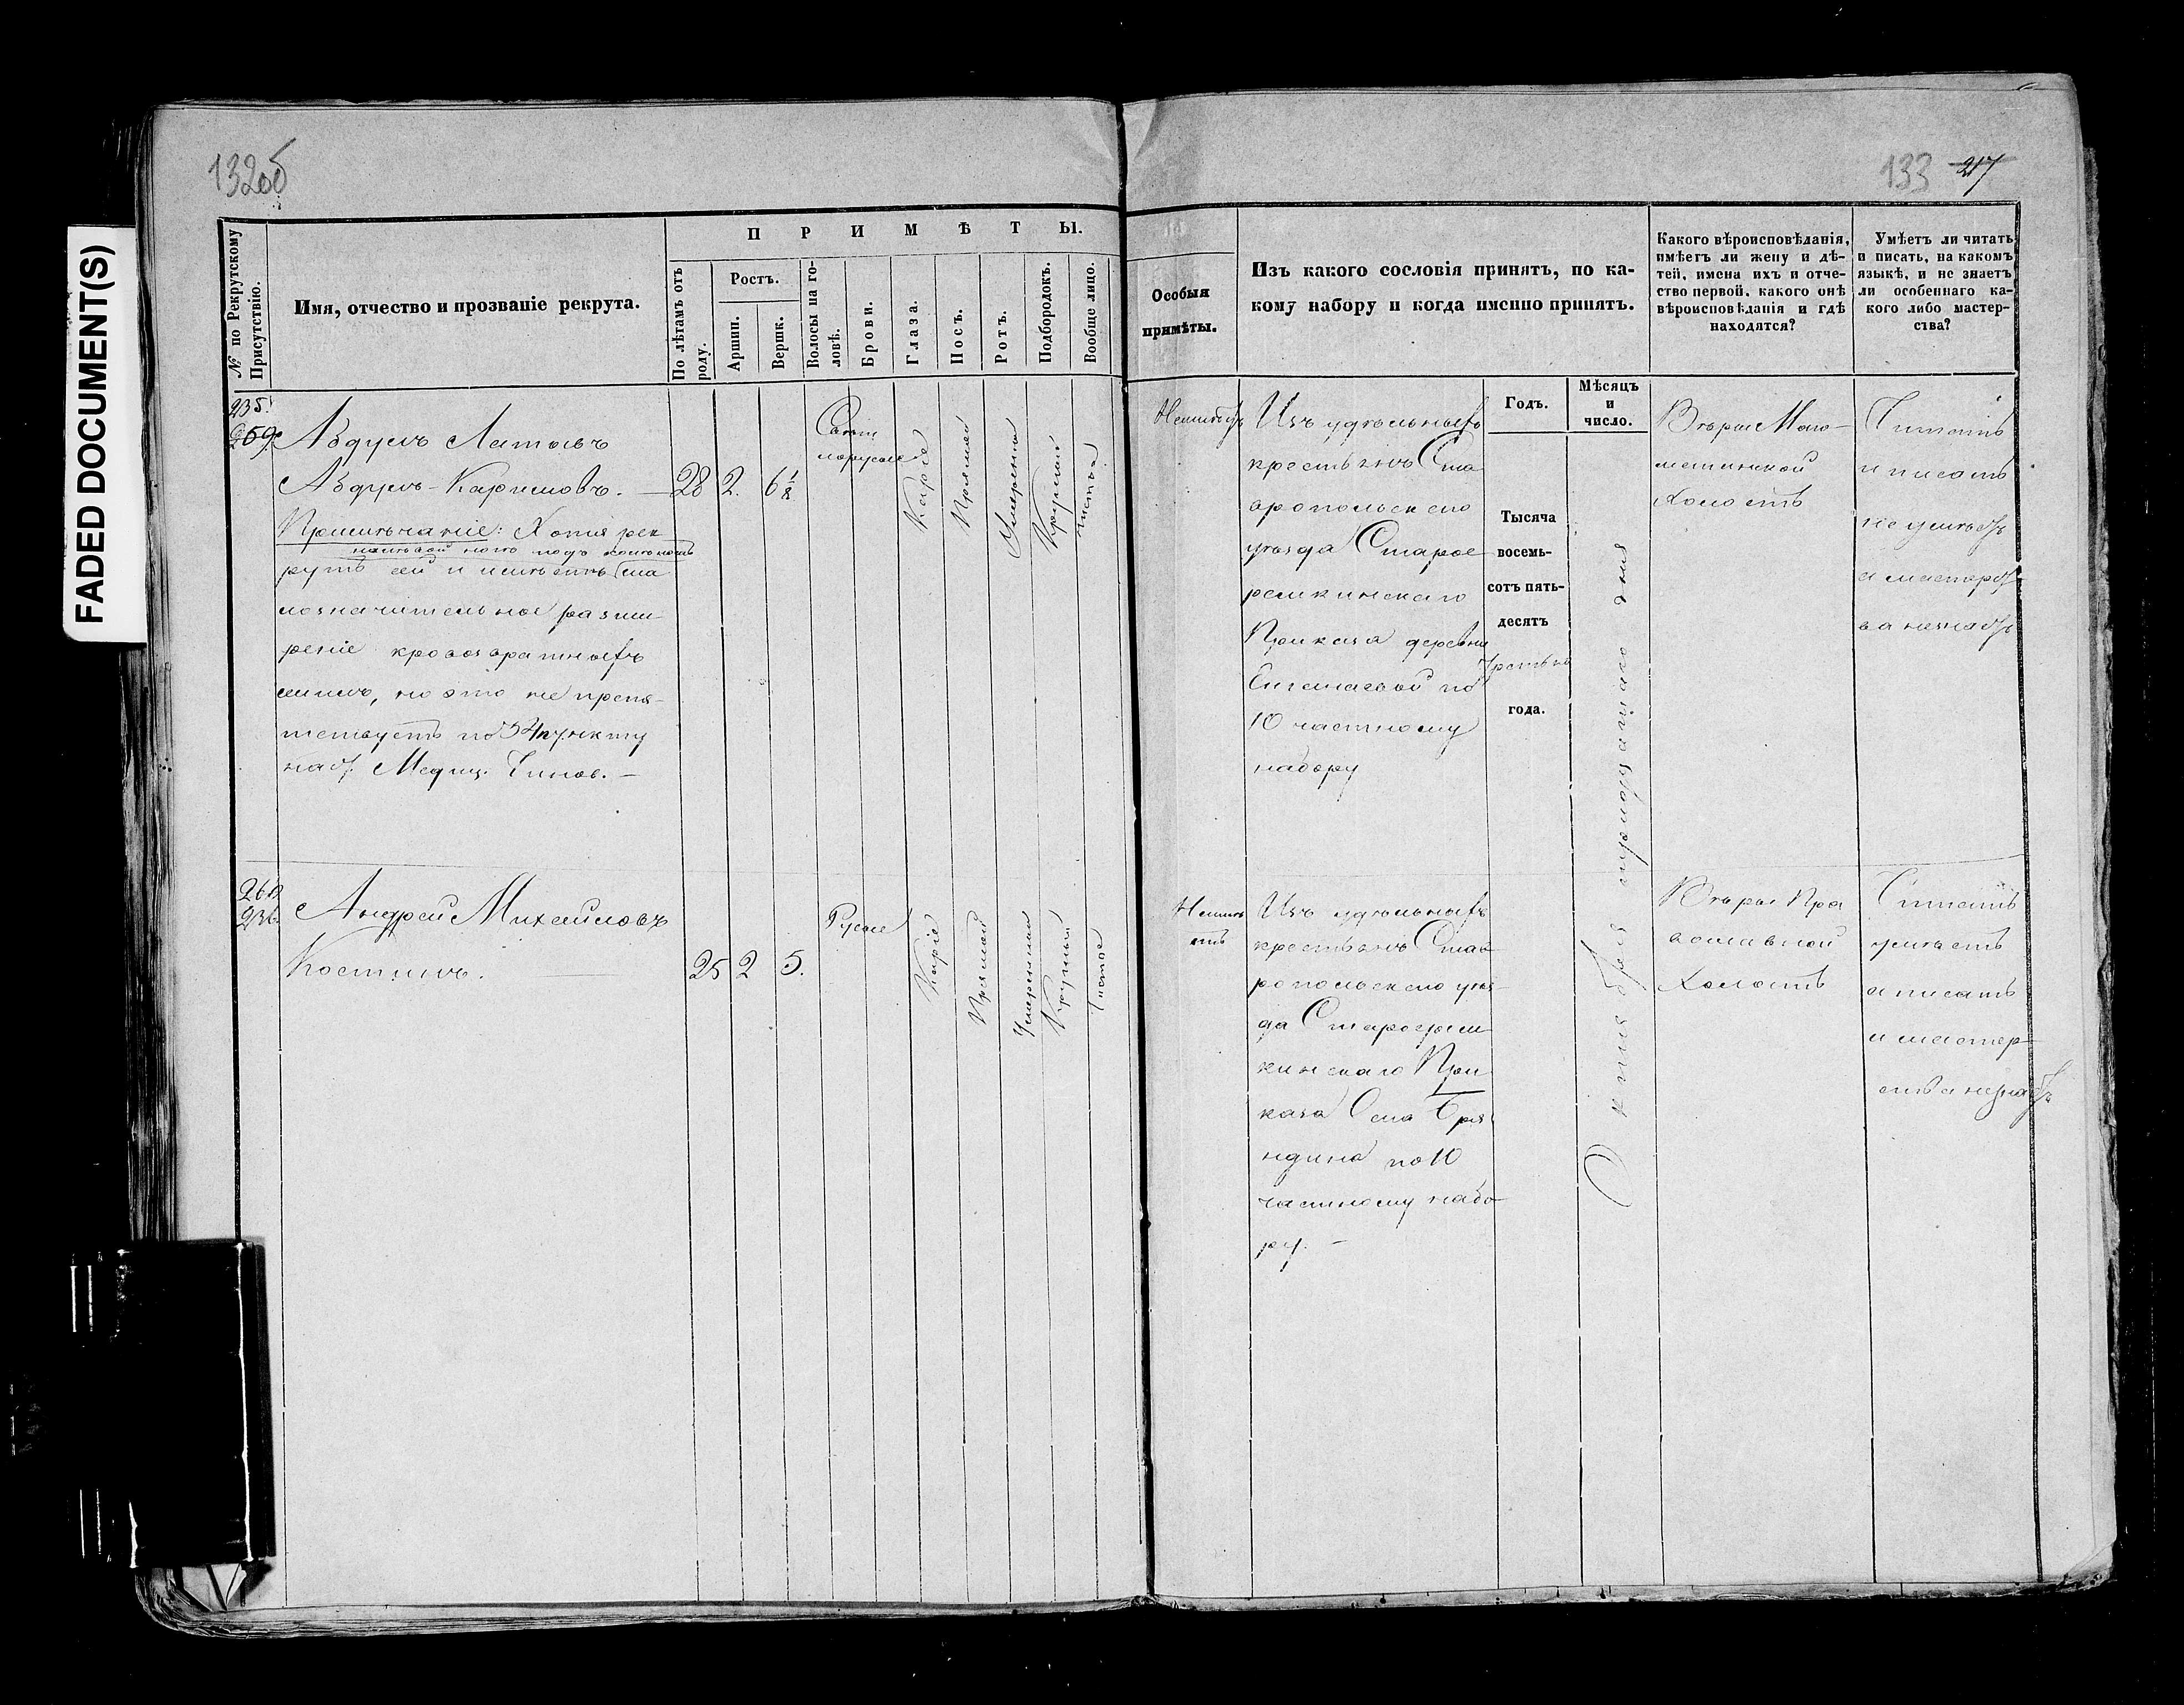 FADED DOCUMENT(S)
132об
133 217
№ по Рекрутскому
Присутствію.
Имя, отчество и прозваніе рекрута.
ПРИМѢТЫ.
По лѣтамъ отъ
роду.
Ростъ.
Аршин.
Вершк.
Волосы на го-
ловѣ.
Брови.
Глаза.
Носъ.
Ротъ.
Подбородокъ.
Вообще лицо.
Особыя
примѣты.
Изъ какого сословія принятъ, по ка-
кому набору и когда именно принятъ.
Какого вѣроисповѣданія,
имѣетъ ли жену и дѣ-
тей, имена ихъ и отче-
ство первой, какого онѣ
вѣроисповѣданія и гдѣ
находятся?
Умѣетъ ли читать
и писать, на какомъ
языкѣ, и не знаетъ
ли особеннаго ка-
кого либо мастер-
ства?
235.
259.
Абдулъ Латыпъ
Абдулъ-Каримовъ. —
Примѣчаніе: Хотя рек
рутъ сей и имѣетъ
малозначительное разши
реніе кровозвратныхъ
жилъ, но это не препя-
тствуетъ по 34 пункту
наст. Медиц. Чинов. —
28
2.
6 1/8
Свѣт
лорусые
Каріе
Прямой
Умеренный
Круглый
Чистое
Неимѣетъ
Изъ удѣльныхъ
крестьянъ Ста
вропольскаго
уѣзда Старое
ремкинскаго
Приказа деревни
по
10 частному
набору
Годъ.
Тысяча
восемь-
сотъ пять-
десятъ
третьяго
года.
Мѣсяцъ
и
число.
Октября тридцатаго дня
Вѣры Маго-
метанской
Холостъ
Читать
и писать
не умѣетъ
и мастерст
ва незнаетъ
260
236.
Андрей Михайловъ
Костинъ.
25
2
5.
Русые
Каріе
Прямой
Умеренный
Круглый
Чистое
Неимѣ
етъ
Изъ удѣльныхъ
крестьянъ Став
ропольскаго уѣз-
да Староерем
кинскаго При
каза Села Бря
ндина по 10
частному набо-
ру. —
Вѣры Пра
вославной
Холостъ
Читать
умѣетъ
а писать
и мастер-
ства незнаетъ